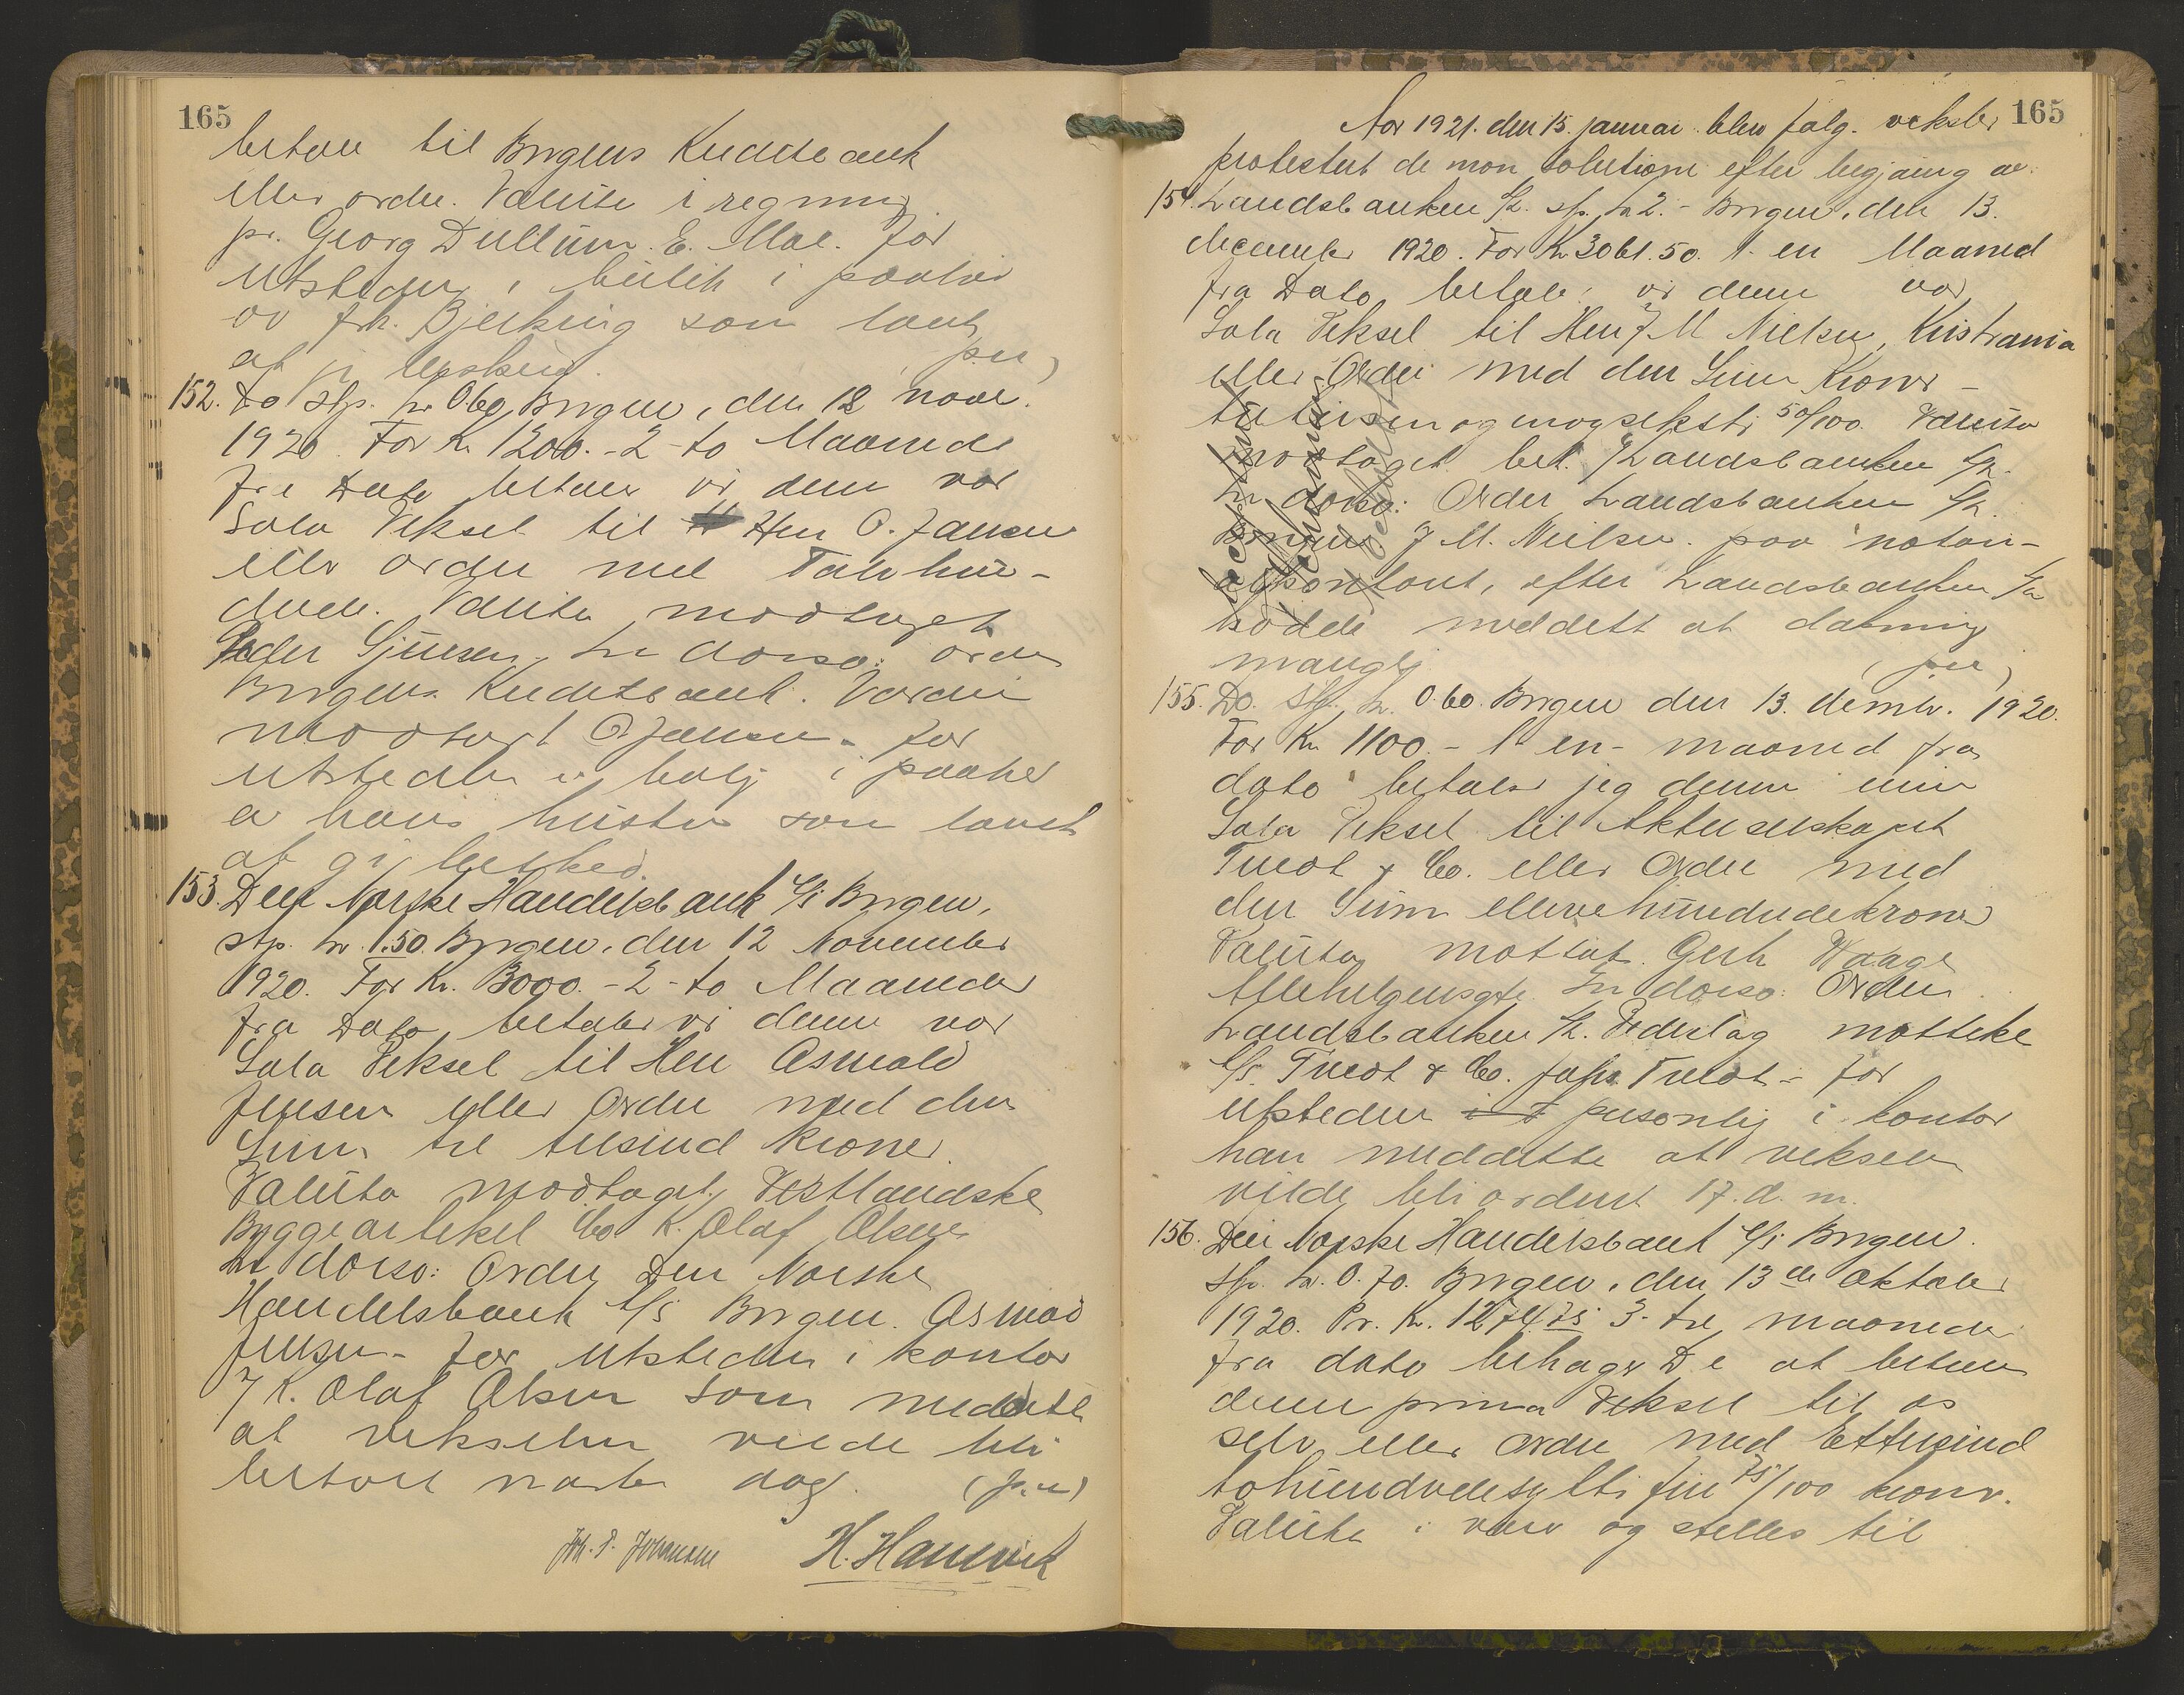 165
betale til Bergens Kreditbank
eller ordre. Valuta i regning
pr. Georg Dullum. E. Moe. For
utstederen i butik i paahør
av frk. Bjerking som lovet
at gi beskjed. (pri)
152. Do stp. kr 0.60 Bergen, den 12 novr.
1920. For Kr. 1200.- 2 - to Maaneder
fra Dato betaler vi denne vor
Sola Veksel til Herr O. Jansen
eller ordre med Tolvhun-
drede. Valuta modtaget
Peder Sjursen. In dorso: ordre
Bergens Kreditbank. Værdi
modtaget O Jansen - for
utstederen i bolig i paahør
av hans hustru som lovet
at gi beskjed.
153. Den Norske Handelsbank A/s Bergen.
stp. kr. 1.50. Bergen, den 12 November
1920. For Kr. 3000. - 2 - to Maaneder
fra Dato betaler vi denne vor
Sola Veksel til Herr Osmald
Jensen eller Ordre med den
Sum tre tusind kroner.
Valuta modtaget, Vestlandske
Byggeartikel Co K. Olaf Olsen
In dorso: Ordre Den Norske
Handelsbank A/s Bergen. Osmald
Jensen - For utstederen i kontor
K. Olaf Olsen som meddelte
at vekselen vilde bli
betalt næste dag. (pri)
Joh. P. Johansen H. Hamvik
165
Aar 1921. den 15. januar blev følg. veksler
protestert de non solutione efter begjæring av:
154. Landsbanken A/L. stp. kr 2. - Bergen, den 13.
december 1920. For Kr 3061.50. 1 - en Maaned
fra Dato betaler vi denne vor
Sola Veksel til Herr J M Nielsen, Kristiania
eller Ordre med den Sum Kroner -
tretusenogenogseksti 50/100. Valuta
modtaget. bet. Landsbanken A/L.
In dorso: Ordre Landsbanken A/L.
Bergen J M. Nielsen. paa notari-
alkontoret, efter Landsbanken A/L
hadde meddelt at dækning
mangler. (pri)
155. Do. stp. kr. 0.60. Bergen den 13. decmbr. 1920.
For Kr. 1100. - 1 - en - maaned fra
dato betaler jeg denne min
Sola Veksel til Aktieselskapet
Tveot & Co. eller Ordre med
den Sum ellevehundredekroner
Valuta mottat. Gerh Waage
Allehelgensgt. In dorso: Ordre
Landsbanken A/L. Vederlag mottat
A/s. Tveot & Co. Johs. Tveot - For
utstederen personlig i kontor
han meddelte at vekselen
vilde bli ordnet 17. d. m.
156. Den Norske Handelsbank A/s Bergen.
stp. kr. 0.70. Bergen, den 13de Oktober
1920. Pr. Kr. 1274.75 3 - tre maaneder
fra dato behager De at betale
denne prima Veksel til os
selv eller Ordre med Ettusind
tohundredesyttifire 75/100 kroner.
Valuta i varer og stilles til